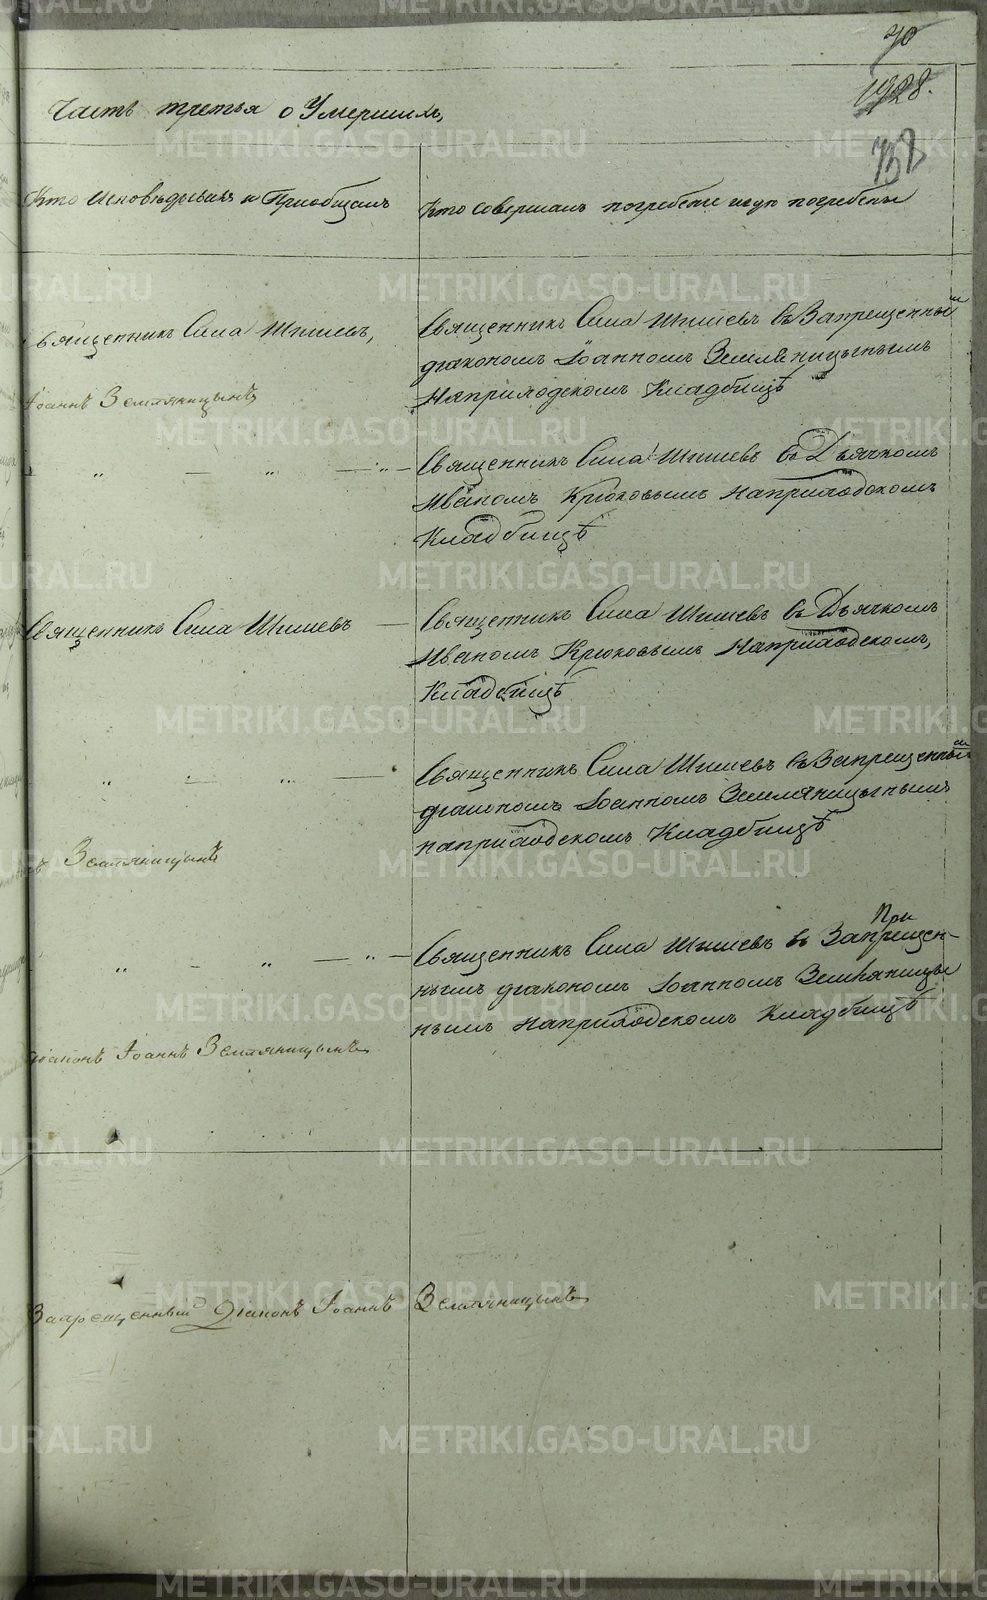 70
1928.
732
Часть третья о Умершихъ,
Кто Исповѣдывалъ и Приобщалъ
Кто совершалъ погребенiе и гдѣ погребены
Священникъ Сила Шишевъ,
Iоаннъ Земляницынъ
Священникъ Сила Шишевъ съ Запрещеннымъ
дiакономъ Iоанномъ Земляницынымъ
На приходскомъ Кладбищѣ
Священникъ Сила Шишевъ съ Дьячкомъ
Иваномъ Крюковымъ на приходскомъ
Кладбищѣ
Священникъ Сила Шишевъ
Священникъ Сила Шишевъ съ Дьячкомъ
Иваномъ Крюковымъ На приходскомъ,
Кладбищѣ
Священникъ Сила Шишевъ съ Запрещеннымъ
дiакономъ Iоанномъ Земляницынымъ
на приходскомъ Кладбищѣ
Земляницынъ
При
Священникъ Сила Шишевъ съ Запрещен-
нымъ дiакономъ Iоанномъ Земляницы
нымъ на приходскомъ Кладбищѣ
дiаконъ Iоаннъ Земляницынъ
Запрещенный Дiаконъ Iоаннъ Земляницынъ
METRIKI.GASO-URAL.RU